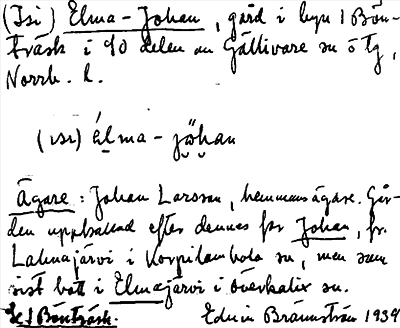 (Isi) Elma-Johan, gård i byn 1 Bön-
träsk i SO delen av Gällivare sn o tg,
Norrb. l.
(ısı) élma-jöhan
Ägare: Johan Larsson, hemmansägare. Går-
den uppkallad efter dennes far Johan, fr.
Lahnajärvi i Korpilombolo sn, men som
sist bott i Elmajärvi i Överkalix sn.
Se 1 Bönträsk. Edvin Brännström 1934